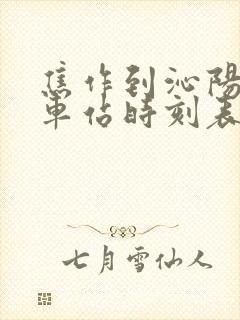 焦作到沁陽
車佔時刻表
七月雪仙人